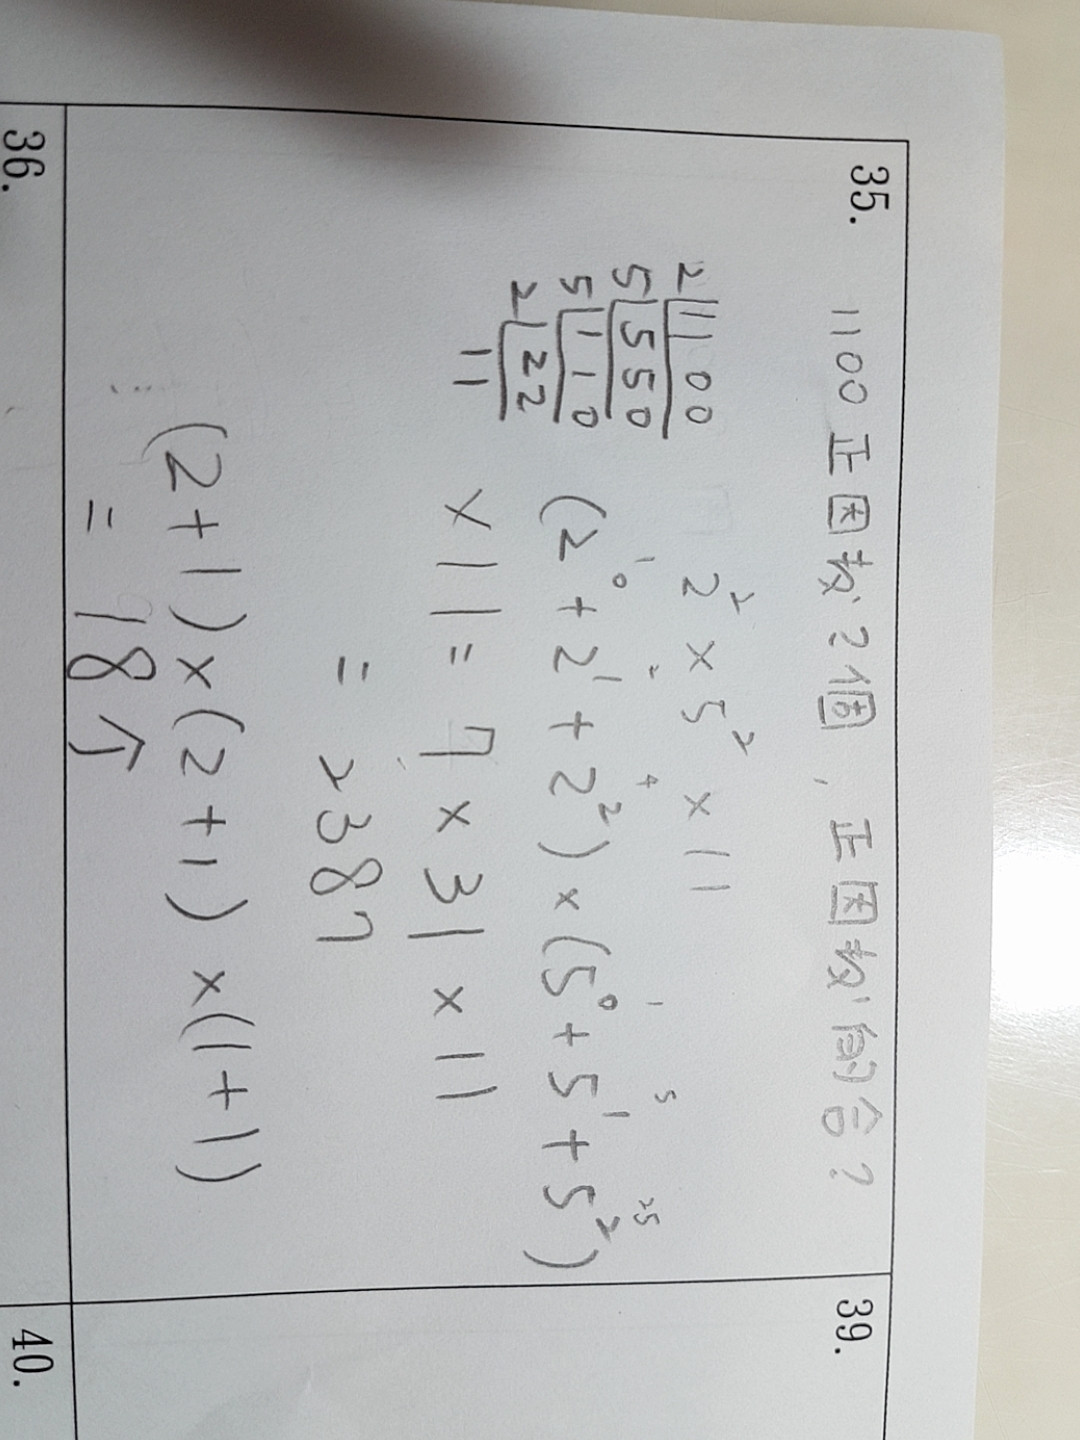 35. 1100正因数?個，正因数的合?
2|1100
5|550
5|110
2|22
11
2² × 5² × 11
1 2 4 1 5 25
(2⁰ + 2¹ + 2²) × (5⁰ + 5¹ + 5²)
× 11 = 7 × 31 × 11
= 2387
(2+1) × (2+1) × (1+1)
= 18个
36.
39.
40.